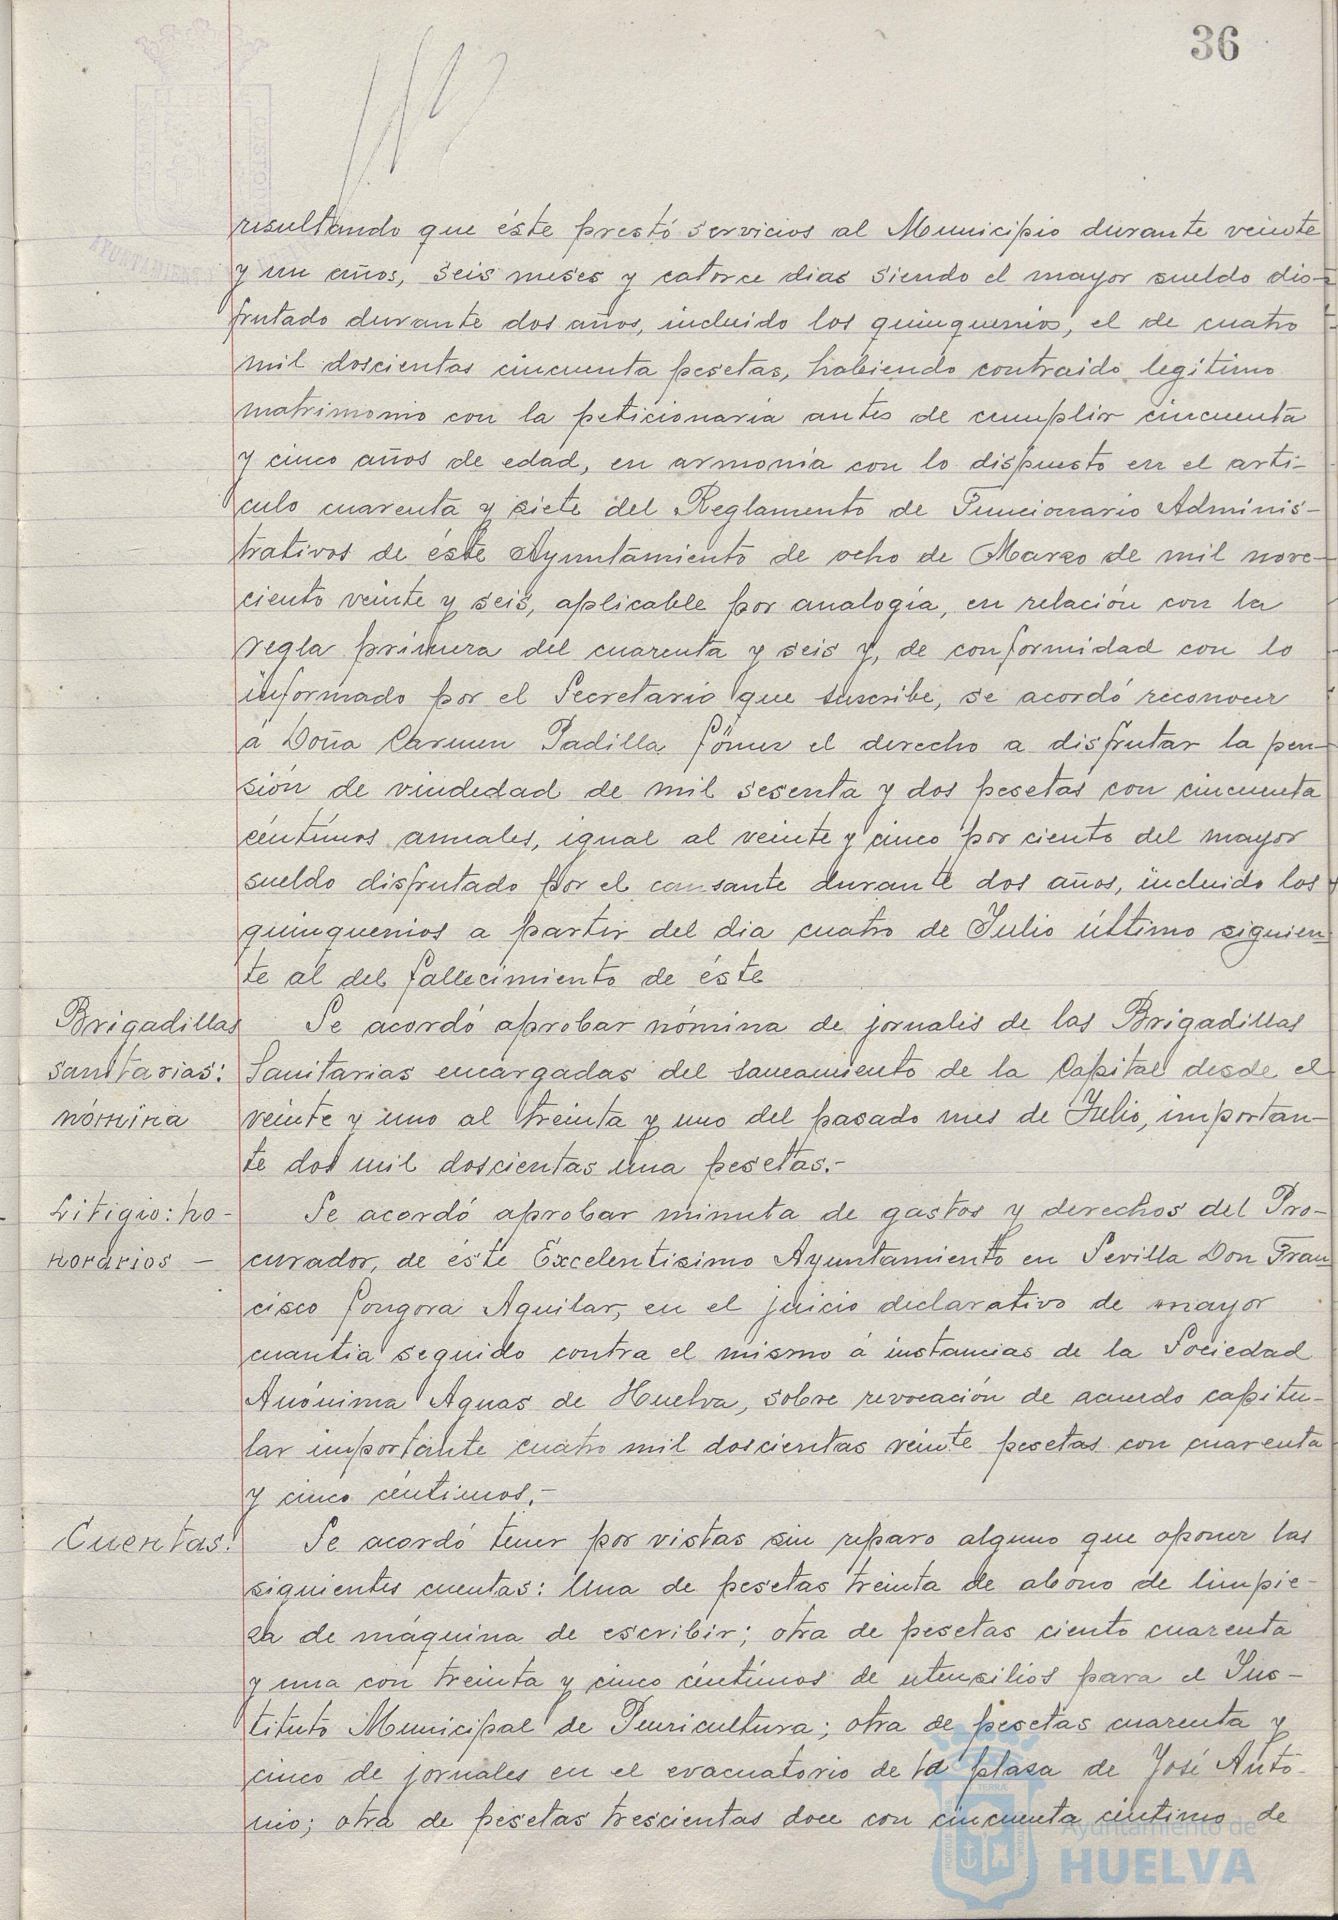 36
resultando que éste prestó servicios al Municipio durante veinte
y un años, seis meses y catorce dias siendo el mayor sueldo dis-
frutado durante dos años, incluido los quinquenios, el de cuatro
mil doscientas cincuenta pesetas, habiendo contraido legitimo
matrimonio con la peticionaria antes de cumplir cincuenta
y cinco años de edad, en armonía con lo dispuesto en el arti-
culo cuarenta y siete del Reglamento de Funcionario Adminis-
trativos de éste Ayuntamiento de ocho de Marzo de mil nove-
ciento veinte y seis, aplicable por analogía, en relación con la
regla primera del cuarenta y seis y, de conformidad con lo
informado por el Secretario que suscribe, se acordó reconocer
á Doña Carmen Padilla Gómez el derecho a disfrutar la pen-
sión de viudedad de mil sesenta y dos pesetas con cincuenta
céntimos anuales, igual al veinte y cinco por ciento del mayor
sueldo disfrutado por el causante durante dos años, incluido los
quinquenios a partir del dia cuatro de Julio último siguien-
te al del fallecimiento de éste
Brigadillas sanitarias: nómina
Se acordó aprobar nómina de jornales de las Brigadillas
Sanitarias encargadas del saneamiento de la Capital desde el
veinte y uno al treinta y uno del pasado mes de Julio, importan-
te dos mil doscientas una pesetas.-
Litigio: ho-
norarios -
Se acordó aprobar minuta de gastos y derechos del Pro-
curador, de éste Excelentisimo Ayuntamiento en Sevilla Don Fran-
cisco Gongora Aguilar, en el juicio declarativo de mayor
cuantia seguido contra el mismo á instancias de la Sociedad
Anónima Aguas de Huelva, sobre revocación de acuerdo capitu-
lar importante cuatro mil doscientas veinte pesetas con cuarenta
y cinco céntimos.-
Cuentas:
Se acordó tener por vistas sin reparo alguno que oponer las
siguientes cuentas: Una de pesetas treinta de abono de limpie-
za de máquina de escribir; otra de pesetas ciento cuarenta
y una con treinta y cinco céntimos de utensilios para el Ins-
tituto Municipal de Puericultura; otra de pesetas cuarenta y
cinco de jornales en el evacuatorio de la plaza de José Anto-
nio; otra de pesetas trescientas doce con cincuenta céntimo de
Ayuntamiento de
HUELVA